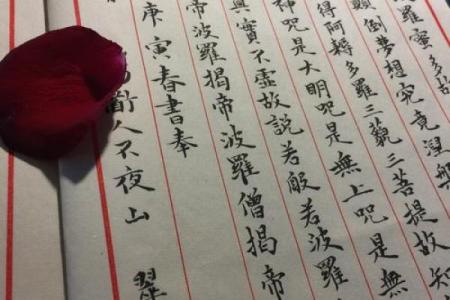 羅蜜多故
顛倒夢想究竟涅槃
得阿耨多羅三藐三菩提故知
神咒是大明咒是無上咒是無
實不虛故說若般若波羅
帝波羅揭帝波羅僧揭帝
庚寅春書奉
人不夜山